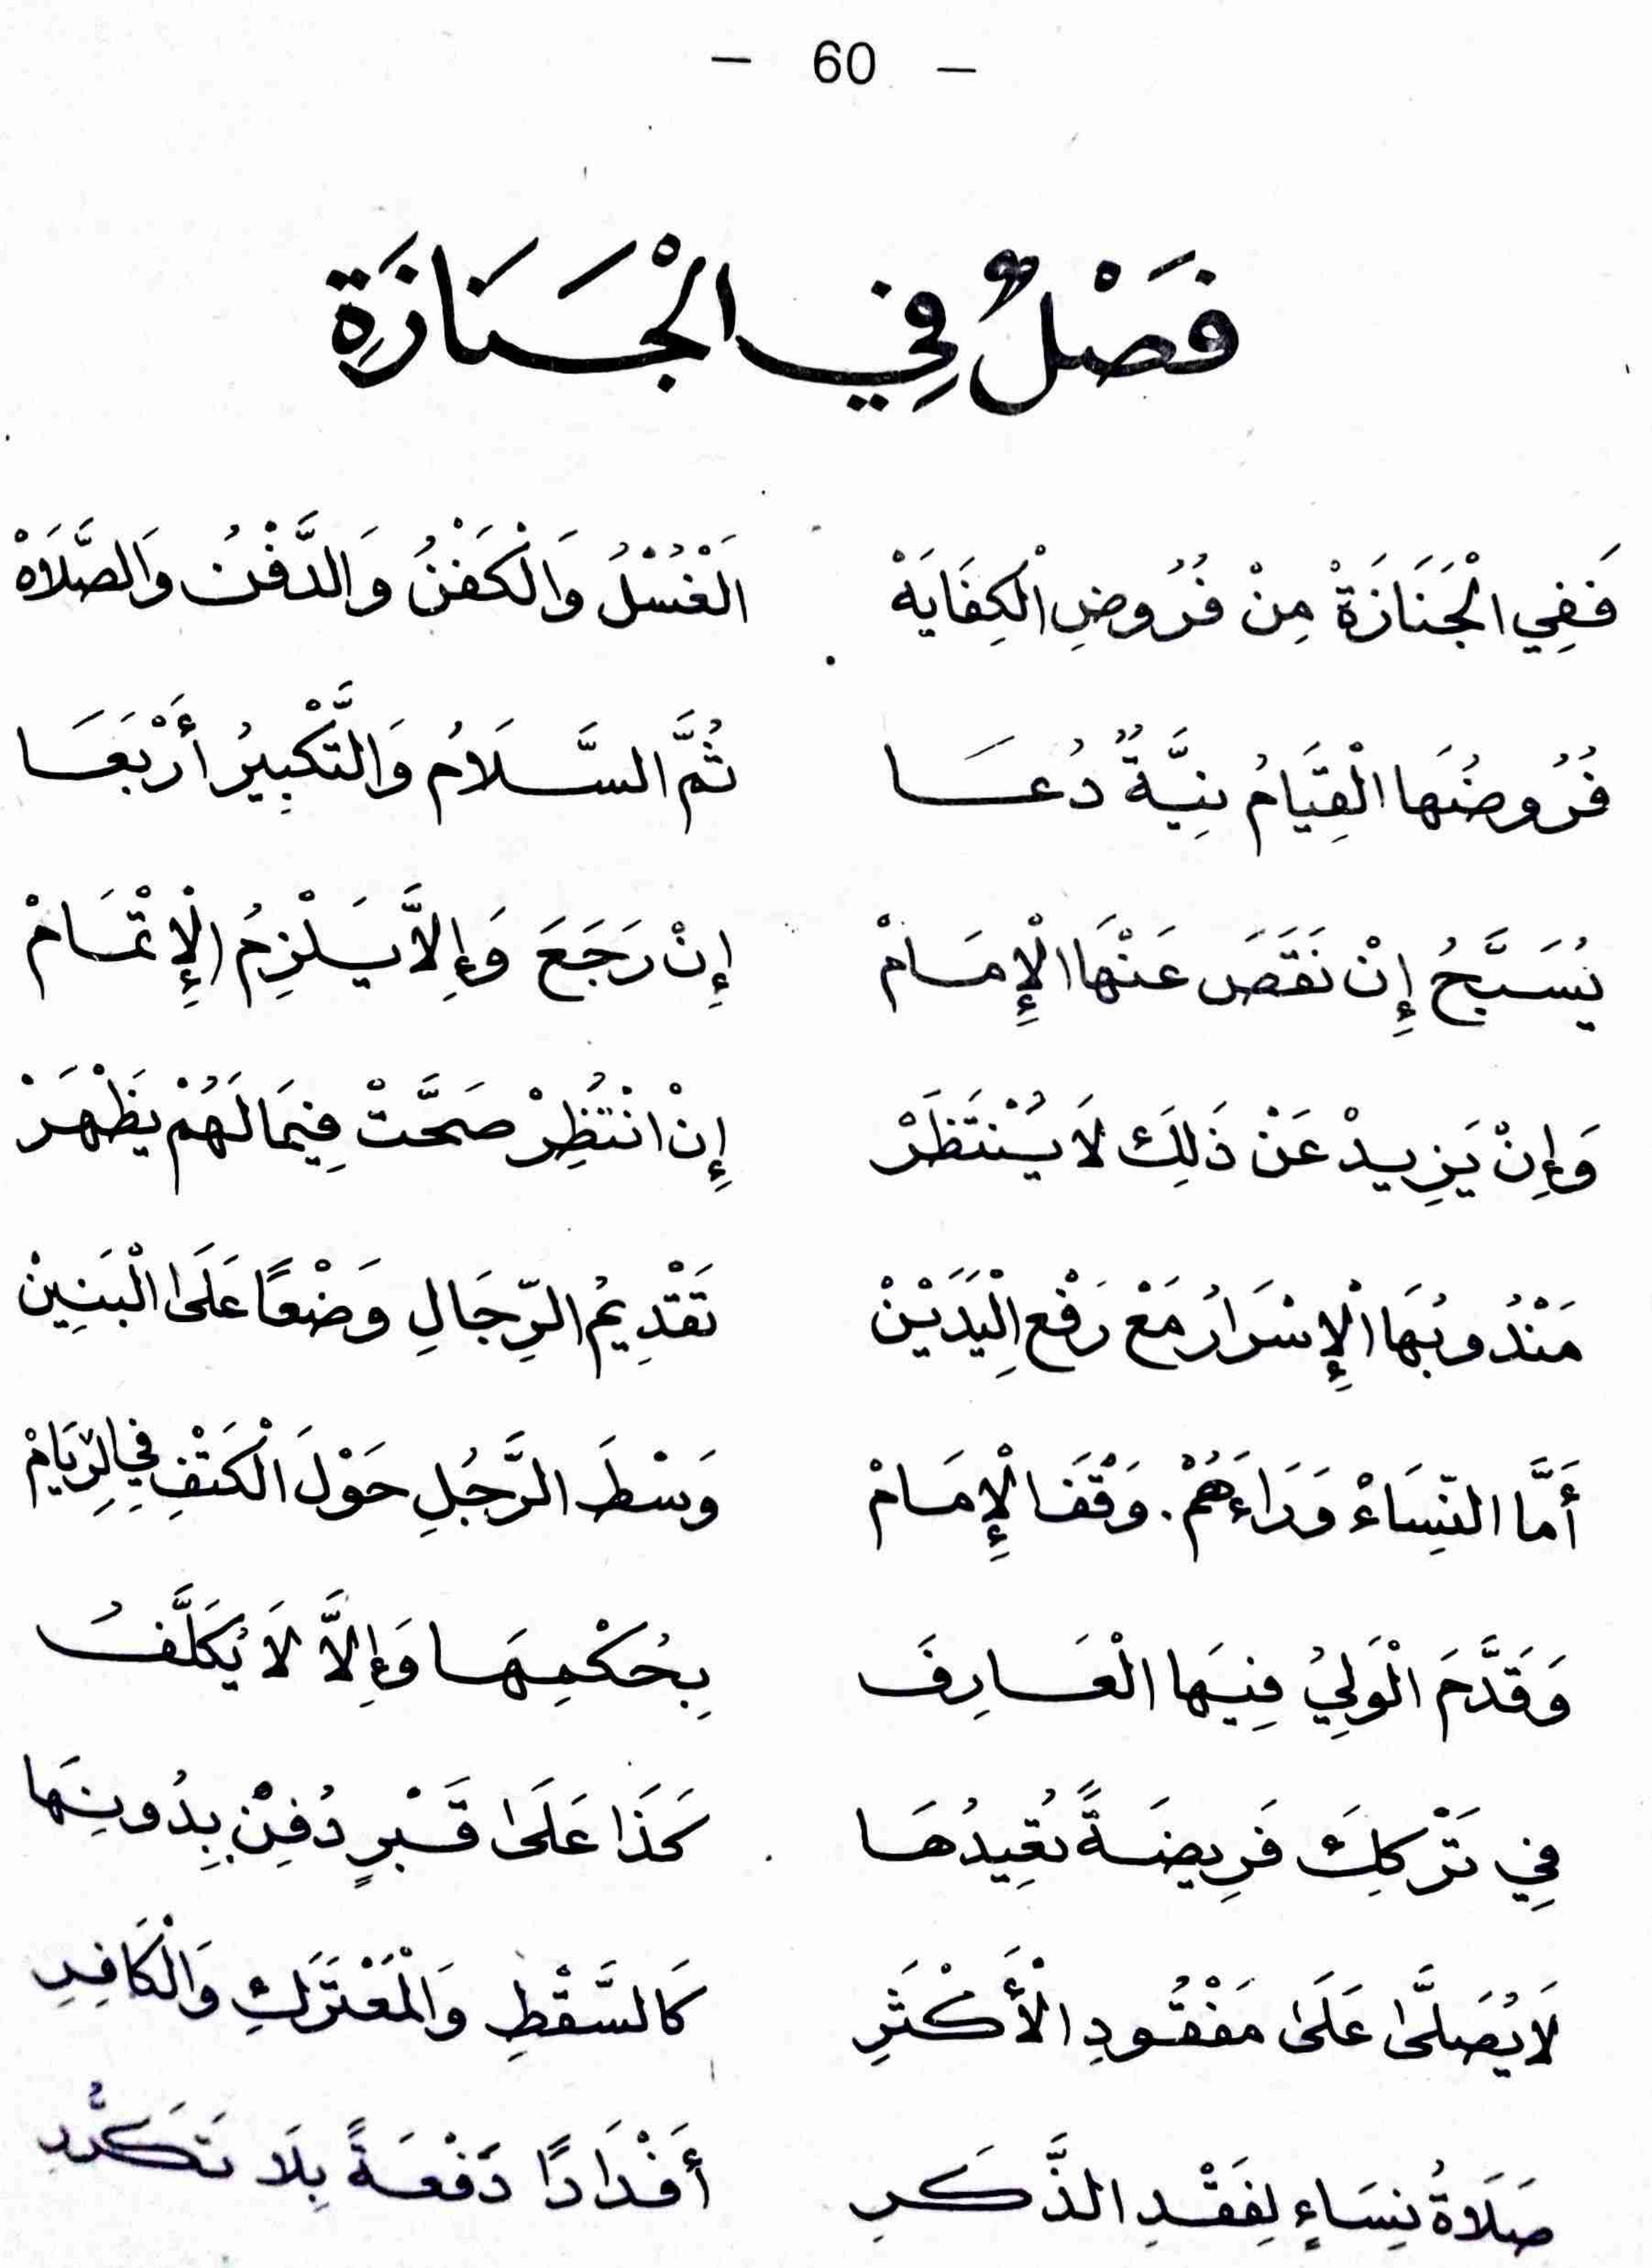 – 60 –
فَصْلٌ فِي الْجَنَازَةِ
فَفِي الْجَنَازَةْ مِنْ فُرُوضِ الْكِفَايَهْ الَغْسْلُ وَالْكَفْنُ وَالدَّفْنُ وَالصَّلَاهْ
فُرُوضُهَا الْقِيَامُ نِيَّةٌ دُعَا ثُمَّ السَّلَامُ وَالتَّكْبِيرُ أَرْبَعَا
يُسَبَّحُ إِنْ نَقَصَ عَنْهَا الْإِمَامْ إِنْ رَجَعَ وَإِلاَّ يَلْزِمُ الْإِتْمَامْ
وَإِنْ يَزِيدْ عَنْ ذَلِكَ لاَ يُنْتَظَرْ إِنْ انْتُظِرْ صَحَّتْ فِيمَا لَهُمْ يَظْهَرْ
مَنْدُوبُهَا الْإِسْرَارُ مَعْ رَفْعِ الْيَدَيْنْ تَقْدِيمُ الرِّجَالِ وَضْعًا عَلَى الْبَنِينْ
أَمَّا النِّسَاءْ وَرَاءَهُمْ. وَقْفَ الْإِمَامْ وَسْطَ الرَّجُلِ حَوْلَ الْكَتْفِ فِي الرِّيَامْ
وَقَدَّمَ الْوَلِيُ فِيهَا الْعَارِفَ بِحُكْمِهَا وَإِلاَّ لاَ يُكَلَّفُ
فِي تَرْكِكَ فَرِيضَةً تُعِيدُهَا كَذَا عَلَى قَبْرٍ دُفِنْ بِدُونِهَا
لَا يُصَلَّى عَلَى مَفْقُودِ الْأَكْثَرِ كَالسَّقْطِ وَالْمُعْتَرَكِ وَالْكَافِرِ
صَلَاةُ نِسَاءٍ لِفَقْدِ الذَّكَرِ أَفْذَاذًا دَفْعَةً بِلَا تَكَرُّرِ